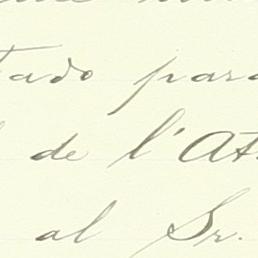 tado para
de l'At
al Sr.